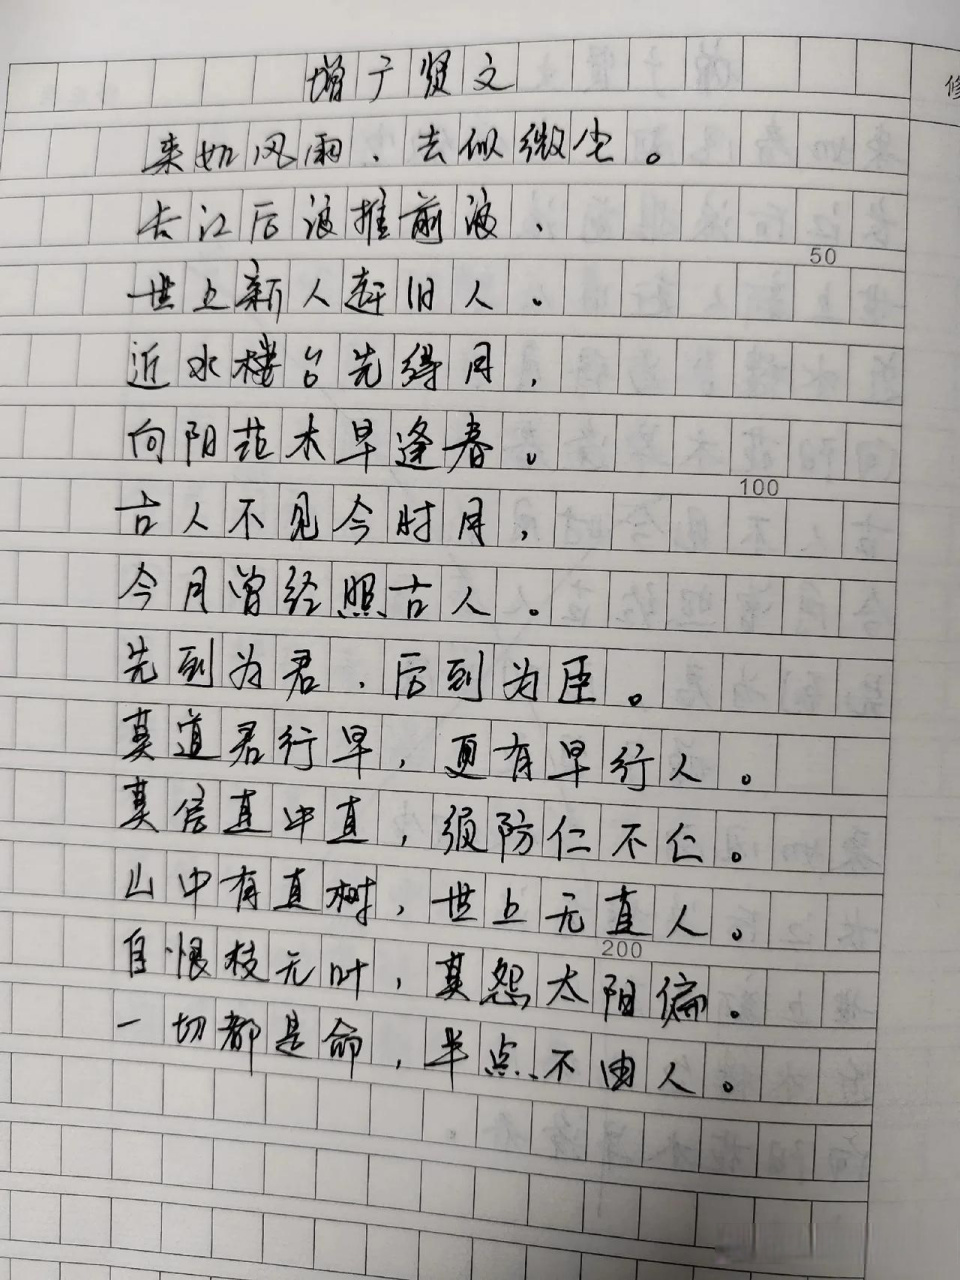 增广贤文
来如风雨、去似微尘。
长江后浪推前浪、
世上新人赶旧人。
50
近水楼台先得月,
向阳花木早逢春。
100
古人不见今时月,
今月曾经照古人。
先到为君、后到为臣。
莫道君行早,更有早行人。
莫信直中直,须防仁不仁。
山中有直树,世上无直人。
200
自恨枝无叶,莫怨太阳偏。
一切都是命,半点不由人。